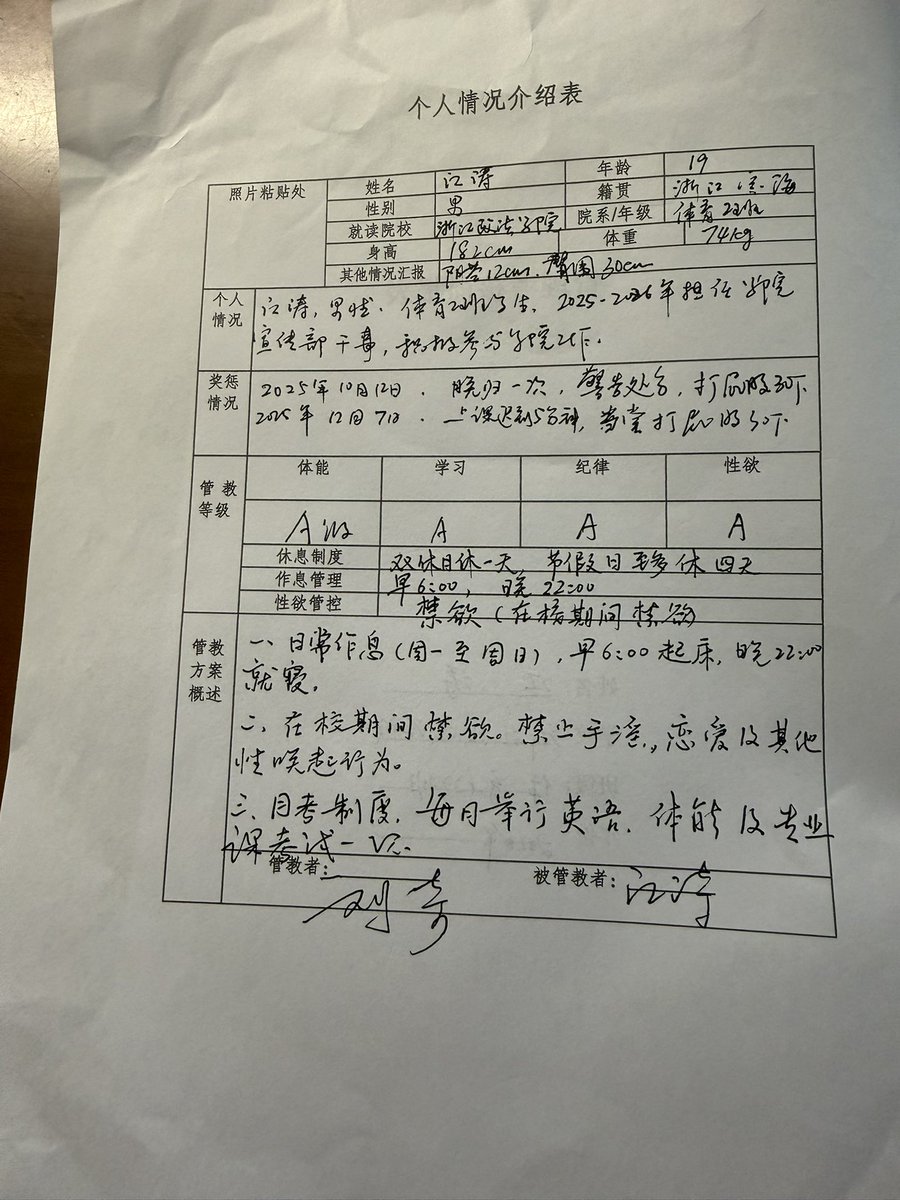 个人情况介绍表
照片粘贴处 姓名 江涛 年龄 19
性别 男 籍贯 浙江 海
就读院校 浙江政法学院 院系/年级 体育2班
身高 182cm 体重 74kg
其他情况汇报 阳茎12cm、臂围30cm
个人情况 江涛,男性、体育2班学生、2025-2026年担任学院
宣传部干事,积极参与学院工作。
奖惩情况 2025年10月12日、晚归一次,警告处分,打屁股30下
2025年12月7日、上课迟到5分钟,当堂打屁股30下
管教等级 体能 学习 纪律 性欲
A级 A A A
休息制度 双休日休一天,节假日至多休四天
作息管理 早6:00,晚22:00
性欲管控 禁欲(在校期间禁欲)
管教方案概述 一、日常作息(周一至周日),早6:00起床,晚22:00
就寝。
二、在校期间禁欲。禁止手淫,恋爱及其他
性唤起行为。
三、月考制度,每月举行英语、体能及专业
课考试一次。
管教者: 刘奇 被管教者: 江涛